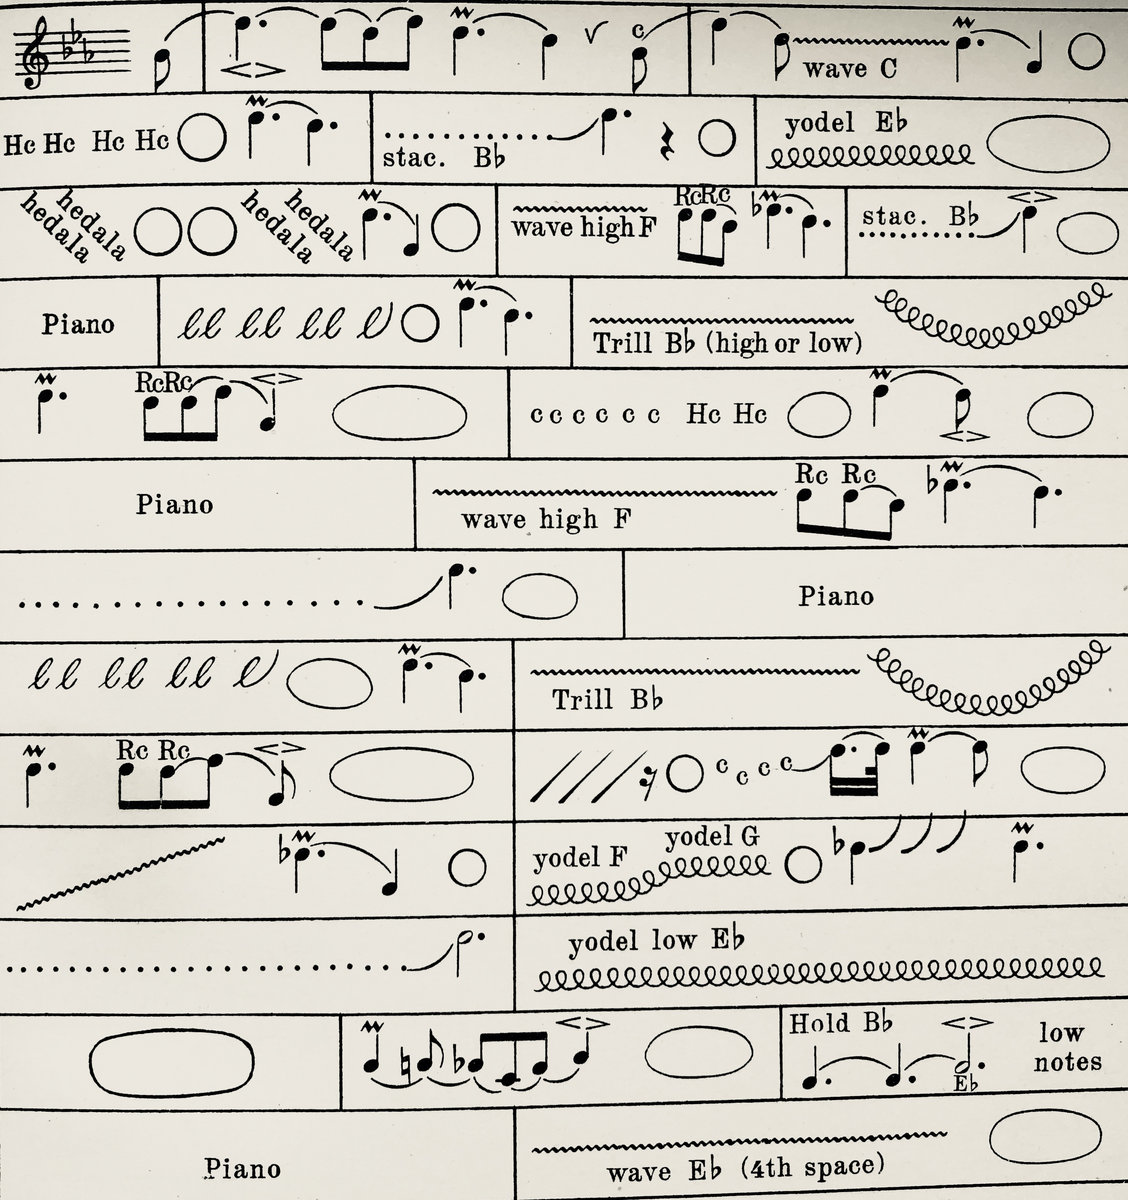 c
wave C
Hc Hc Hc Hc
stac. B♭
yodel E♭
hedala
hedala
hedala
hedala
wave high F
RcRc
stac. B♭
Piano
ll ll ll l
Trill B♭ (high or low)
RcRc
c c c c c c Hc Hc
Piano
wave high F
Rc Rc
Piano
ll ll ll l
Trill B♭
Rc Rc
c c c c
yodel F
yodel G
yodel low E♭
Hold B♭
E♭
low
notes
Piano
wave E♭ (4th space)